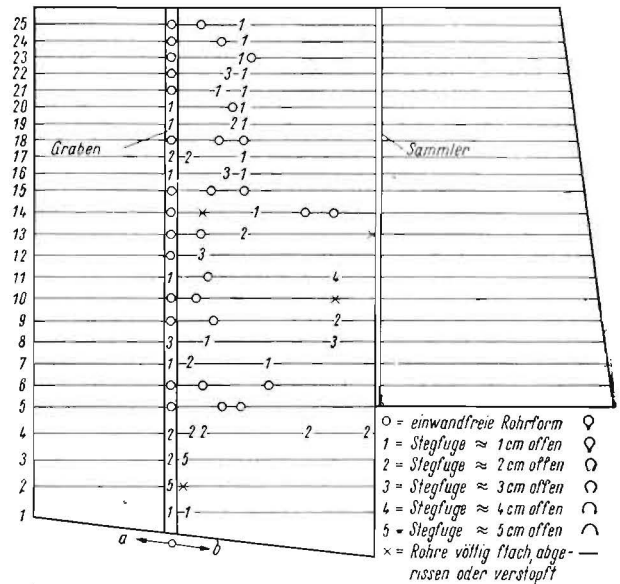 25 ○ ○ 1
24 ○ ○ 1
23 ○ 1 ○
22 ○ 3 1
21 ○ 1 1
20 1 ○ 1
19 1 2 1
18 ○ ○ ○
Graben
Sammler
17 2 2 1
16 1 3 1
15 ○ ○ ○
14 ○ × 1 ○ ○
13 ○ ○ 2 ×
12 ○ 3
11 1 ○ 4
10 ○ ○ ×
9 ○ ○ 2
8 3 1 3
7 1 2 1
6 ○ ○ ○
5 ○ ○ ○
4 2 2 2 2 2
3 2 5
2 5 ×
1 1 1
a b
○ = einwandfreie Rohrform
1 = Stegfuge ≈ 1 cm offen
2 = Stegfuge ≈ 2 cm offen
3 = Stegfuge ≈ 3 cm offen
4 = Stegfuge ≈ 4 cm offen
5 = Stegfuge ≈ 5 cm offen
× = Rohre völlig flach, abge-
rissen oder verstopft